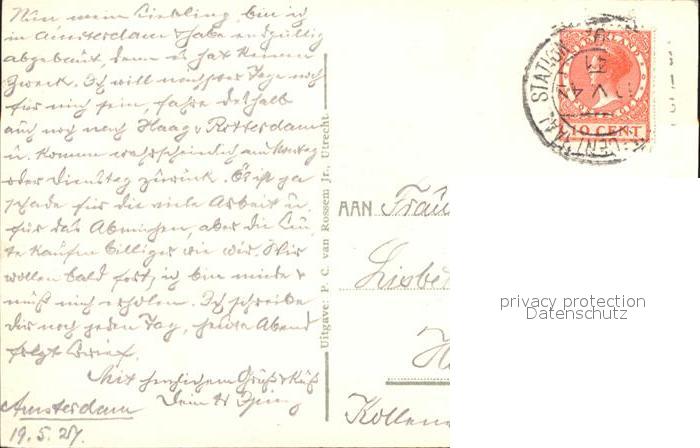 Nun mein Liebling, bin ich
in Amsterdam & habe endgültig
abgebaut, denn es hat keinen
Zweck. Ich will noch Tage noch
für mich sein, fahre deshalb
auch noch nach Haag, Rotterdam
u. komme wahrscheinlich am Montag
oder Dienstag zurück. Es ist ja
schade für die viele Arbeit u.
für das Abmühen, aber die Leu-
te kaufen billiger wie wir. Wir
wollen bald fort, ich bin müde &
muß mich erholen. Ich schreibe
Dir noch jeden Tag, heute Abend
folgt Brief.
Mit herzlichem Gruß & Kuß
Dein
Amsterdam
19.5.27.
Uitgave: P. C. van Rossem Jr., Utrecht
STATION
10 CENT
AAN Frau
Lisbe
H
Kollen
privacy protection
Datenschutz